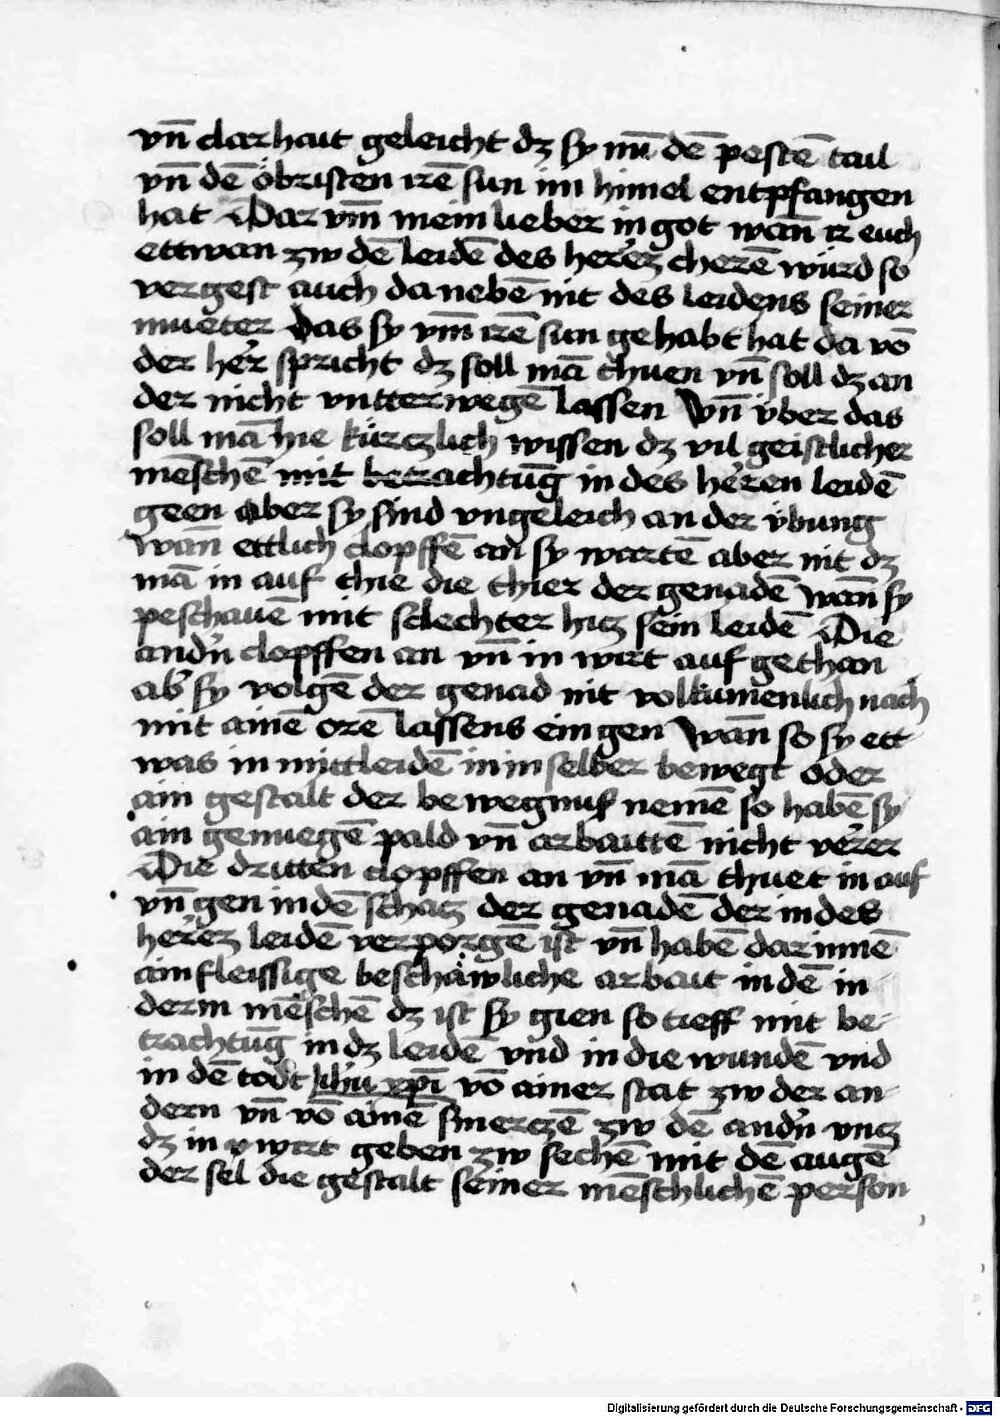 vn̄ clarhait geleicht dz sy nu̅ de̅ peste̅ tail
vn̄ de̅ öbristen ire̅ sun im himel entpfangen
hat Dar vm̅ mein lieber in got wan̅ ir euch
ettwan zw de̅ leide̅ des herrez chere̅ würd so
vergest auch da nebe̅ nit des leidens seiner
mueter das sy vm̅ ire̅ sun gehabt hat da vo̅
der her̕ spricht dz soll ma̅ thuen vn̄ soll dz an
der nicht vntterwege̅ lassen Vn̄ über das
soll ma̅ hie kürczlich wissen dz vil geistlicher
me̅sche̅ mit betrachtu̅g in des he̕ren leide̅
geen aber sy sind vngeleich an der übung
wan̅ ettlich clopffe̅ an sy warte̅ aber nit dz
ma̅ in auf thie die thier der genade̅ wan̅ sy
peschaue̅ mit sclechter hicz sein leide̅ Die
andn̕ clopffen an vn̄ in wirt auf gethan
ab̕ sy volge̅ der genad nit volkumenlich nach
mit aine̅ ore̅ lassens ein gen wan̅ so sy ett
was in mittleide̅ in in selber bewegt oder
ain gestalt der bewegnuß neme̅ so habe̅ sy
ain genuege̅ pald vn̄ arbaitte̅ nicht ve̕rer
Die dritten clopffen an vn̄ ma̅ thuet in auf
vn̄ gen in de̅ schacz der genade̅ der in des
he̕rez leide̅ verporge̅ ist vn̄ habe̅ darinne̅
ain fleissige beschäwliche arbait in de̅ in
derm me̅sche̅ dz ist sy gien so tieff mit be-
trachtu̅g in dz leide̅ vnd in die wunde̅ vnd
in de̅ todt ihu̅ xp̅i vo̅ ainer stat zw der an-
dern vn̄ vo̅ aine̅ smercze̅ zw de̅ andn̕ vncz
dz in wirt geben zw seche̅ mit de̅ auge̅
der sel die gestalt seiner me̅schliche̅ person
Digitalisierung gefördert durch die Deutsche Forschungsgemeinschaft - DFG